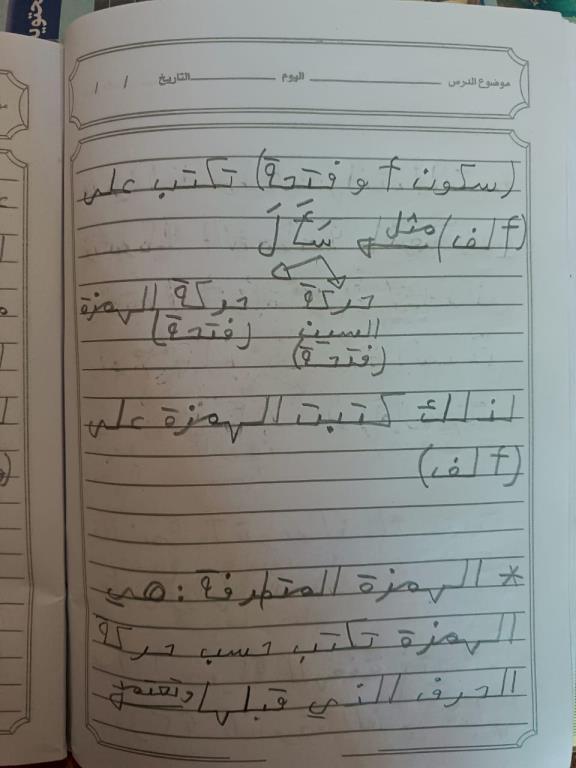 موضوع الدرس اليوم التاريخ / /
(سكون أو فتحة) تكتب على
(ألف) مثل سَأَلَ
حركة حركة الهمزة
السين (فتحة)
(فتحة)
لذلك كتبت الهمزة على
(ألف)
* الهمزة المتطرفة : هي
الهمزة تكتب حسب حركة
الحرف الذي قبلها